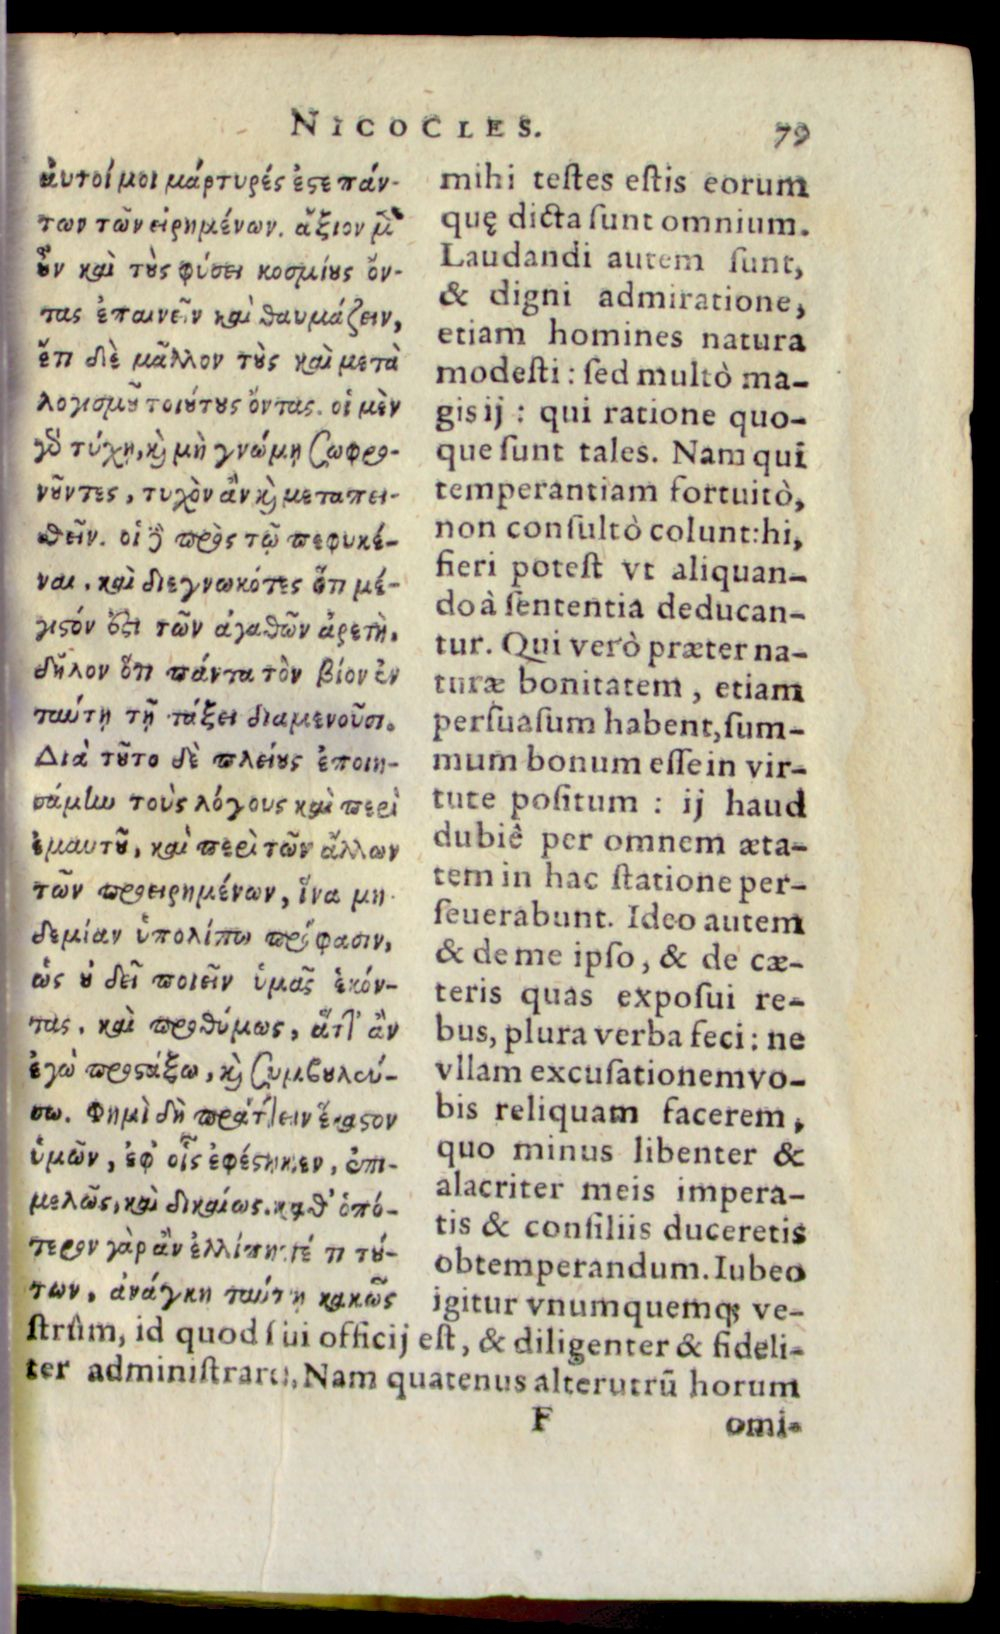 NICOCLES. 79
αὐτοί μοι μάρτυρές ἐστε πάν-
των τῶν εἰρημένων. ἄξιον μὲν
οὖν καὶ τοὺς φύσει κοσμίους ὄν-
τας ἐπαινεῖν καὶ θαυμάζειν,
ἔτι δὲ μᾶλλον τοὺς καὶ μετὰ
λογισμοῦ τοιούτους ὄντας. οἱ μὲν
γὰρ τύχῃ, καὶ μὴ γνώμῃ σωφρο-
νοῦντες, τυχὸν ἂν καὶ μεταπει-
θεῖν. οἱ δὲ πρὸς τῷ πεφυκέ-
ναι, καὶ διεγνωκότες ὅτι μέ-
γιστόν ἐστι τῶν ἀγαθῶν ἀρετὴ,
δῆλον ὅτι πάντα τὸν βίον ἐν
ταύτῃ τῇ τάξει διαμενοῦσι.
Διὰ τοῦτο δὲ πλείους ἐποιη-
σάμην τοὺς λόγους καὶ περὶ
ἐμαυτοῦ, καὶ περὶ τῶν ἄλλων
τῶν προειρημένων, ἵνα μη-
δεμίαν ὑπολίπω πρόφασιν,
ὡς οὐ δεῖ ποιεῖν ὑμᾶς ἑκόν-
τας, καὶ προθύμως, ἅττ' ἂν
ἐγὼ προστάξω, καὶ συμβουλεύ-
σω. Φημὶ δὴ πράττειν ἕκαστον
ὑμῶν, ἐφ' οἷς ἐφέστηκεν, ἐπι-
μελῶς, καὶ δικαίως. καθ' ὁπό-
τερον γὰρ ἂν ἐλλίπητέ τι τού-
των, ἀνάγκη ταύτῃ κακῶς
mihi testes estis eorum
quę dicta sunt omnium.
Laudandi autem sunt,
& digni admiratione,
etiam homines natura
modesti : sed multò ma-
gis ij : qui ratione quo-
que sunt tales. Nam qui
temperantiam fortuitò,
non consultò colunt: hi,
fieri potest vt aliquan-
do à sententia deducan-
tur. Qui verò præter na-
turæ bonitatem, etiam
persuasum habent, sum-
mum bonum esse in vir-
tute positum : ij haud
dubiè per omnem æta-
tem in hac statione per-
seuerabunt. Ideo autem
& de me ipso, & de cæ-
teris quas exposui re-
bus, plura verba feci : ne
vllam excusationem vo-
bis reliquam facerem,
quo minus libenter &
alacriter meis impera-
tis & consiliis duceretis
obtemperandum. Iubeo
igitur vnumquemq; ve-
strûm, id quod sui officij est, & diligenter & fideli-
ter administrare. Nam quatenus alterutrũ horum
F omi-